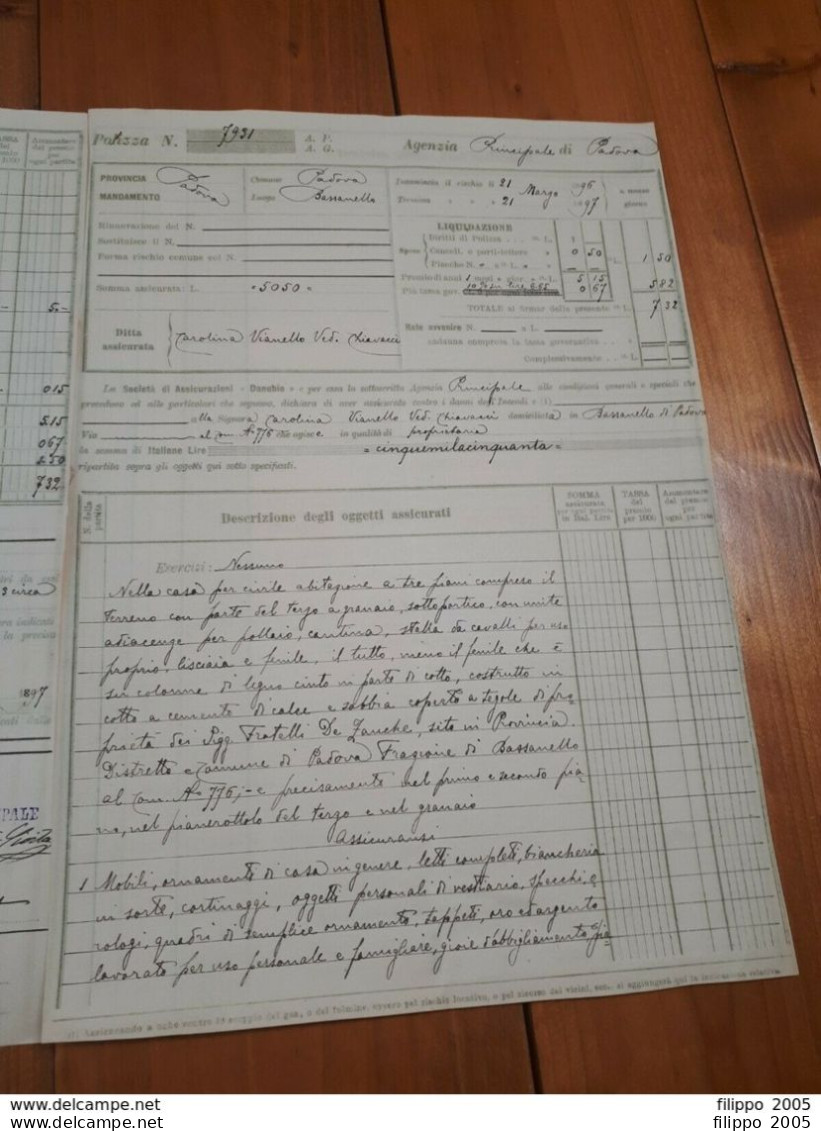 Polizza N. 7931 A. V. A. G. Agenzia Principale di Padova
PROVINCIA Padova Comune Padova
MANDAMENTO Luogo Bassanello
Incomincia il rischio li 21 Marzo 96 a mezzo
Termina 21 97 giorno
Rinnovazione del N.
Sostituisce il N.
Forma rischio comune col N.
Somma assicurata: L. =5050=
Ditta assicurata Carolina Vianello Ved. Chiavacci
LIQUIDAZIONE
Spese Diritti di Polizza L. 1
Cancell. e porto-lettere 0 50 L. 1 50
Placche N. L.
Premio di anni 1 mesi giorni L. 5 15
Più tassa gov. 10 % su lire 6.65 0 67 5 82
TOTALE al firmar della presente L. 7 32
Rate avvenire N. a L.
cadauna compresa la tassa governativa L.
Complessivamente L.
La Società di Assicurazioni « Danubio » e per essa la sottoscritta Agenzia Principale alle condizioni generali e speciali che
precedono ed alle particolari che seguono, dichiara di aver assicurato contro i danni degl'Incendi e (1)
alla Signora Carolina Vianello Ved. Chiavacci domiciliata in Bassanello di Padova
Via al Com. N. 776 che agisce in qualità di proprietaria
la somma di Italiane Lire =cinquemilacinquanta=
ripartita sopra gli oggetti qui sotto specificati.
N. della partita
Descrizione degli oggetti assicurati
SOMMA assicurata per ogni partita in Ital. Lire
TASSA del premio per 1000
Ammontare del premio per ogni partita
Esercizi: Nessuno
Nella casa per civile abitazione a tre piani compreso il
terreno con parte del terzo a granaio, sottoportico, con unite
adiacenze per pollaio, cantina, stalla da cavalli per uso
proprio, lisciaia e fenile, il tutto, meno il fenile che è
su colonne di legno cinto in parte di cotto, costrutto in
cotto a cemento di calce e sabbia coperto a tegole di pro
prietà dei Sigg. Fratelli De Zanche, sito in Provincia.
Distretto e Comune di Padova Frazione di Bassanello
al Com. N. 776,- e precisamente nel primo e secondo pia
no, nel pianerottolo del terzo e nel granaio
Assicuransi
1 Mobili, ornamenti di casa in genere, letti completi, biancheria
in sorte, cortinaggi, oggetti personali di vestiario, specchi, o
rologi, quadri di semplice ornamento, tappeti, oro ed argento
lavorato per uso personale e famigliare, gioie d'abbigliamento
TASSA del 1000
Ammontare del premio per ogni partita
5.-
015
5.15
0.67
250
732
3 circa
indicati
la precisa
1897
PALE
filippo 2005
filippo 2005